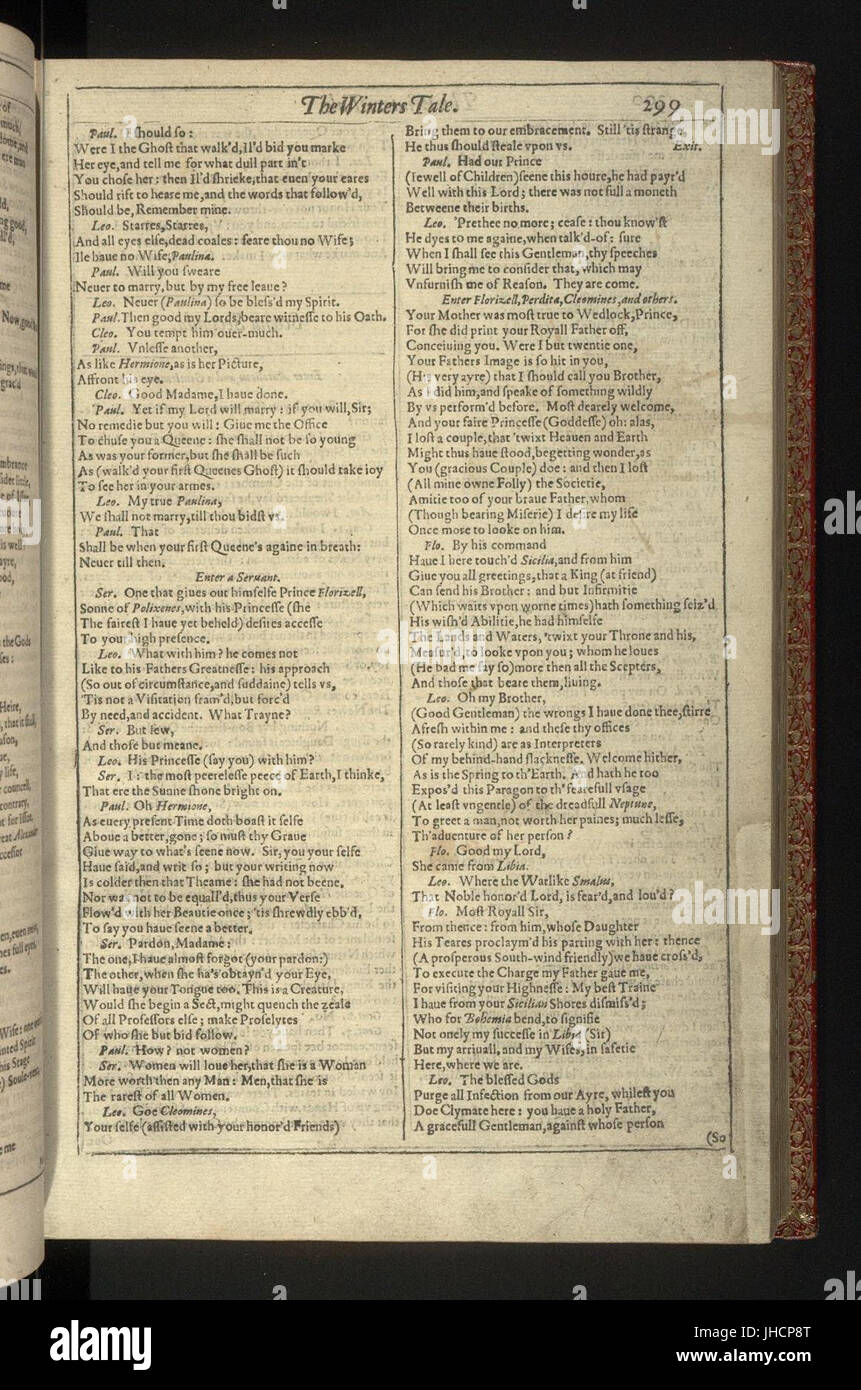 The Winters Tale. 299
Paul. I should so:
Were I the Ghost that walk'd, Il'd bid you marke
Her eye, and tell me for what dull part in't
You chose her: then Il'd shrieke, that euen your eares
Should rift to heare me, and the words that follow'd,
Should be, Remember mine.
Leo. Starres, Starres,
And all eyes else, dead coales: feare thou no Wife;
Ile haue no Wife, Paulina.
Paul. Will you sweare
Neuer to marry, but by my free leaue?
Leo. Neuer (Paulina) so be bless'd my Spirit.
Paul. Then good my Lords, beare witnesse to his Oath.
Cleo. You tempt him ouer-much.
Paul. Vnlesse another,
As like Hermione, as is her Picture,
Affront his eye.
Cleo. Good Madame, I haue done.
Paul. Yet if my Lord will marry: if you will, Sir;
No remedie but you will: Giue me the Office
To chuse you a Queene: she shall not be so young
As was your former, but she shall be such
As (walk'd your first Queenes Ghost) it should take ioy
To see her in your armes.
Leo. My true Paulina,
We shall not marry, till thou bidst vs.
Paul. That
Shall be when your first Queene's againe in breath:
Neuer till then.
Enter a Seruant.
Ser. One that giues out himselfe Prince Florizell,
Sonne of Polixenes, with his Princesse (she
The fairest I haue yet beheld) desires accesse
To your high presence.
Leo. What with him? he comes not
Like to his Fathers Greatnesse: his approach
(So out of circumstance, and suddaine) tells vs,
'Tis not a Visitation fram'd, but forc'd
By need, and accident. What Trayne?
Ser. But few,
And those but meane.
Leo. His Princesse (say you) with him?
Ser. I: the most peerelesse peece of Earth, I thinke,
That ere the Sunne shone bright on.
Paul. Oh Hermione,
As euery present Time doth boast it selfe
Aboue a better, gone; so must thy Graue
Giue way to what's seene now. Sir, you your selfe
Haue said, and writ so; but your writing now
Is colder then that Theame: she had not beene,
Nor was not to be equall'd, thus your Verse
Flow'd with her Beautie once; 'tis shrewdly ebb'd,
To say you haue seene a better.
Ser. Pardon, Madame:
The one, I haue almost forgot (your pardon:)
The other, when she ha's obtayn'd your Eye,
Will haue your Tongue too. This is a Creature,
Would she begin a Sect, might quench the zeale
Of all Professors else; make Proselytes
Of who she but bid follow.
Paul. How? not women?
Ser. Women will loue her, that she is a Woman
More worth then any Man: Men, that she is
The rarest of all Women.
Leo. Goe Cleomines,
Your selfe (assisted with your honor'd Friends)
Bring them to our embracement. Still 'tis strange,
He thus should steale vpon vs. Exit.
Paul. Had our Prince
(Iewell of Children) seene this houre, he had payr'd
Well with this Lord; there was not full a moneth
Betweene their births.
Leo. 'Prethee no more; cease: thou know'st
He dyes to me againe, when talk'd-of: sure
When I shall see this Gentleman, thy speeches
Will bring me to consider that, which may
Vnfurnish me of Reason. They are come.
Enter Florizell, Perdita, Cleomines, and others.
Your Mother was most true to Wedlock, Prince,
For she did print your Royall Father off,
Conceiuing you. Were I but twentie one,
Your Fathers Image is so hit in you,
(His very ayre) that I should call you Brother,
As I did him, and speake of something wildly
By vs perform'd before. Most dearely welcome,
And your faire Princesse (Goddesse) oh: alas,
I lost a couple, that 'twixt Heauen and Earth
Might thus haue stood, begetting wonder, as
You (gracious Couple) doe: and then I lost
(All mine owne Folly) the Societie,
Amitie too of your braue Father, whom
(Though bearing Miserie) I desire my life
Once more to looke on him.
Flo. By his command
Haue I here touch'd Sicilia, and from him
Giue you all greetings, that a King (at friend)
Can send his Brother: and but Infirmitie
(Which waits vpon worne times) hath something seiz'd
His wish'd Abilitie, he had himselfe
The Lands and Waters, 'twixt your Throne and his,
Measur'd, to looke vpon you; whom he loues
(He bad me say so) more then all the Scepters,
And those that beare them, liuing.
Leo. Oh my Brother,
(Good Gentleman) the wrongs I haue done thee, stirre
Afresh within me: and these thy offices
(So rarely kind) are as Interpreters
Of my behind-hand slacknesse. Welcome hither,
As is the Spring to th'Earth. And hath he too
Expos'd this Paragon to th'fearefull vsage
(At least vngentle) of the dreadfull Neptune,
To greet a man, not worth her paines; much lesse,
Th'aduenture of her person?
Flo. Good my Lord,
She came from Libia.
Leo. Where the Warlike Smalus,
That Noble honor'd Lord, is fear'd, and lou'd?
Flo. Most Royall Sir,
From thence: from him, whose Daughter
His Teares proclaym'd his parting with her: thence
(A prosperous South-wind friendly) we haue cross'd,
To execute the Charge my Father gaue me,
For visiting your Highnesse: My best Traine
I haue from your Sicilian Shores dismiss'd;
Who for Bohemia bend, to signifie
Not onely my successe in Libia (Sir)
But my arriuall, and my Wifes, in safetie
Here, where we are.
Leo. The blessed Gods
Purge all Infection from our Ayre, whilest you
Doe Clymate here: you haue a holy Father,
A gracefull Gentleman, against whose person
(So
alamy
Image ID: JHCP8T
www.alamy.com